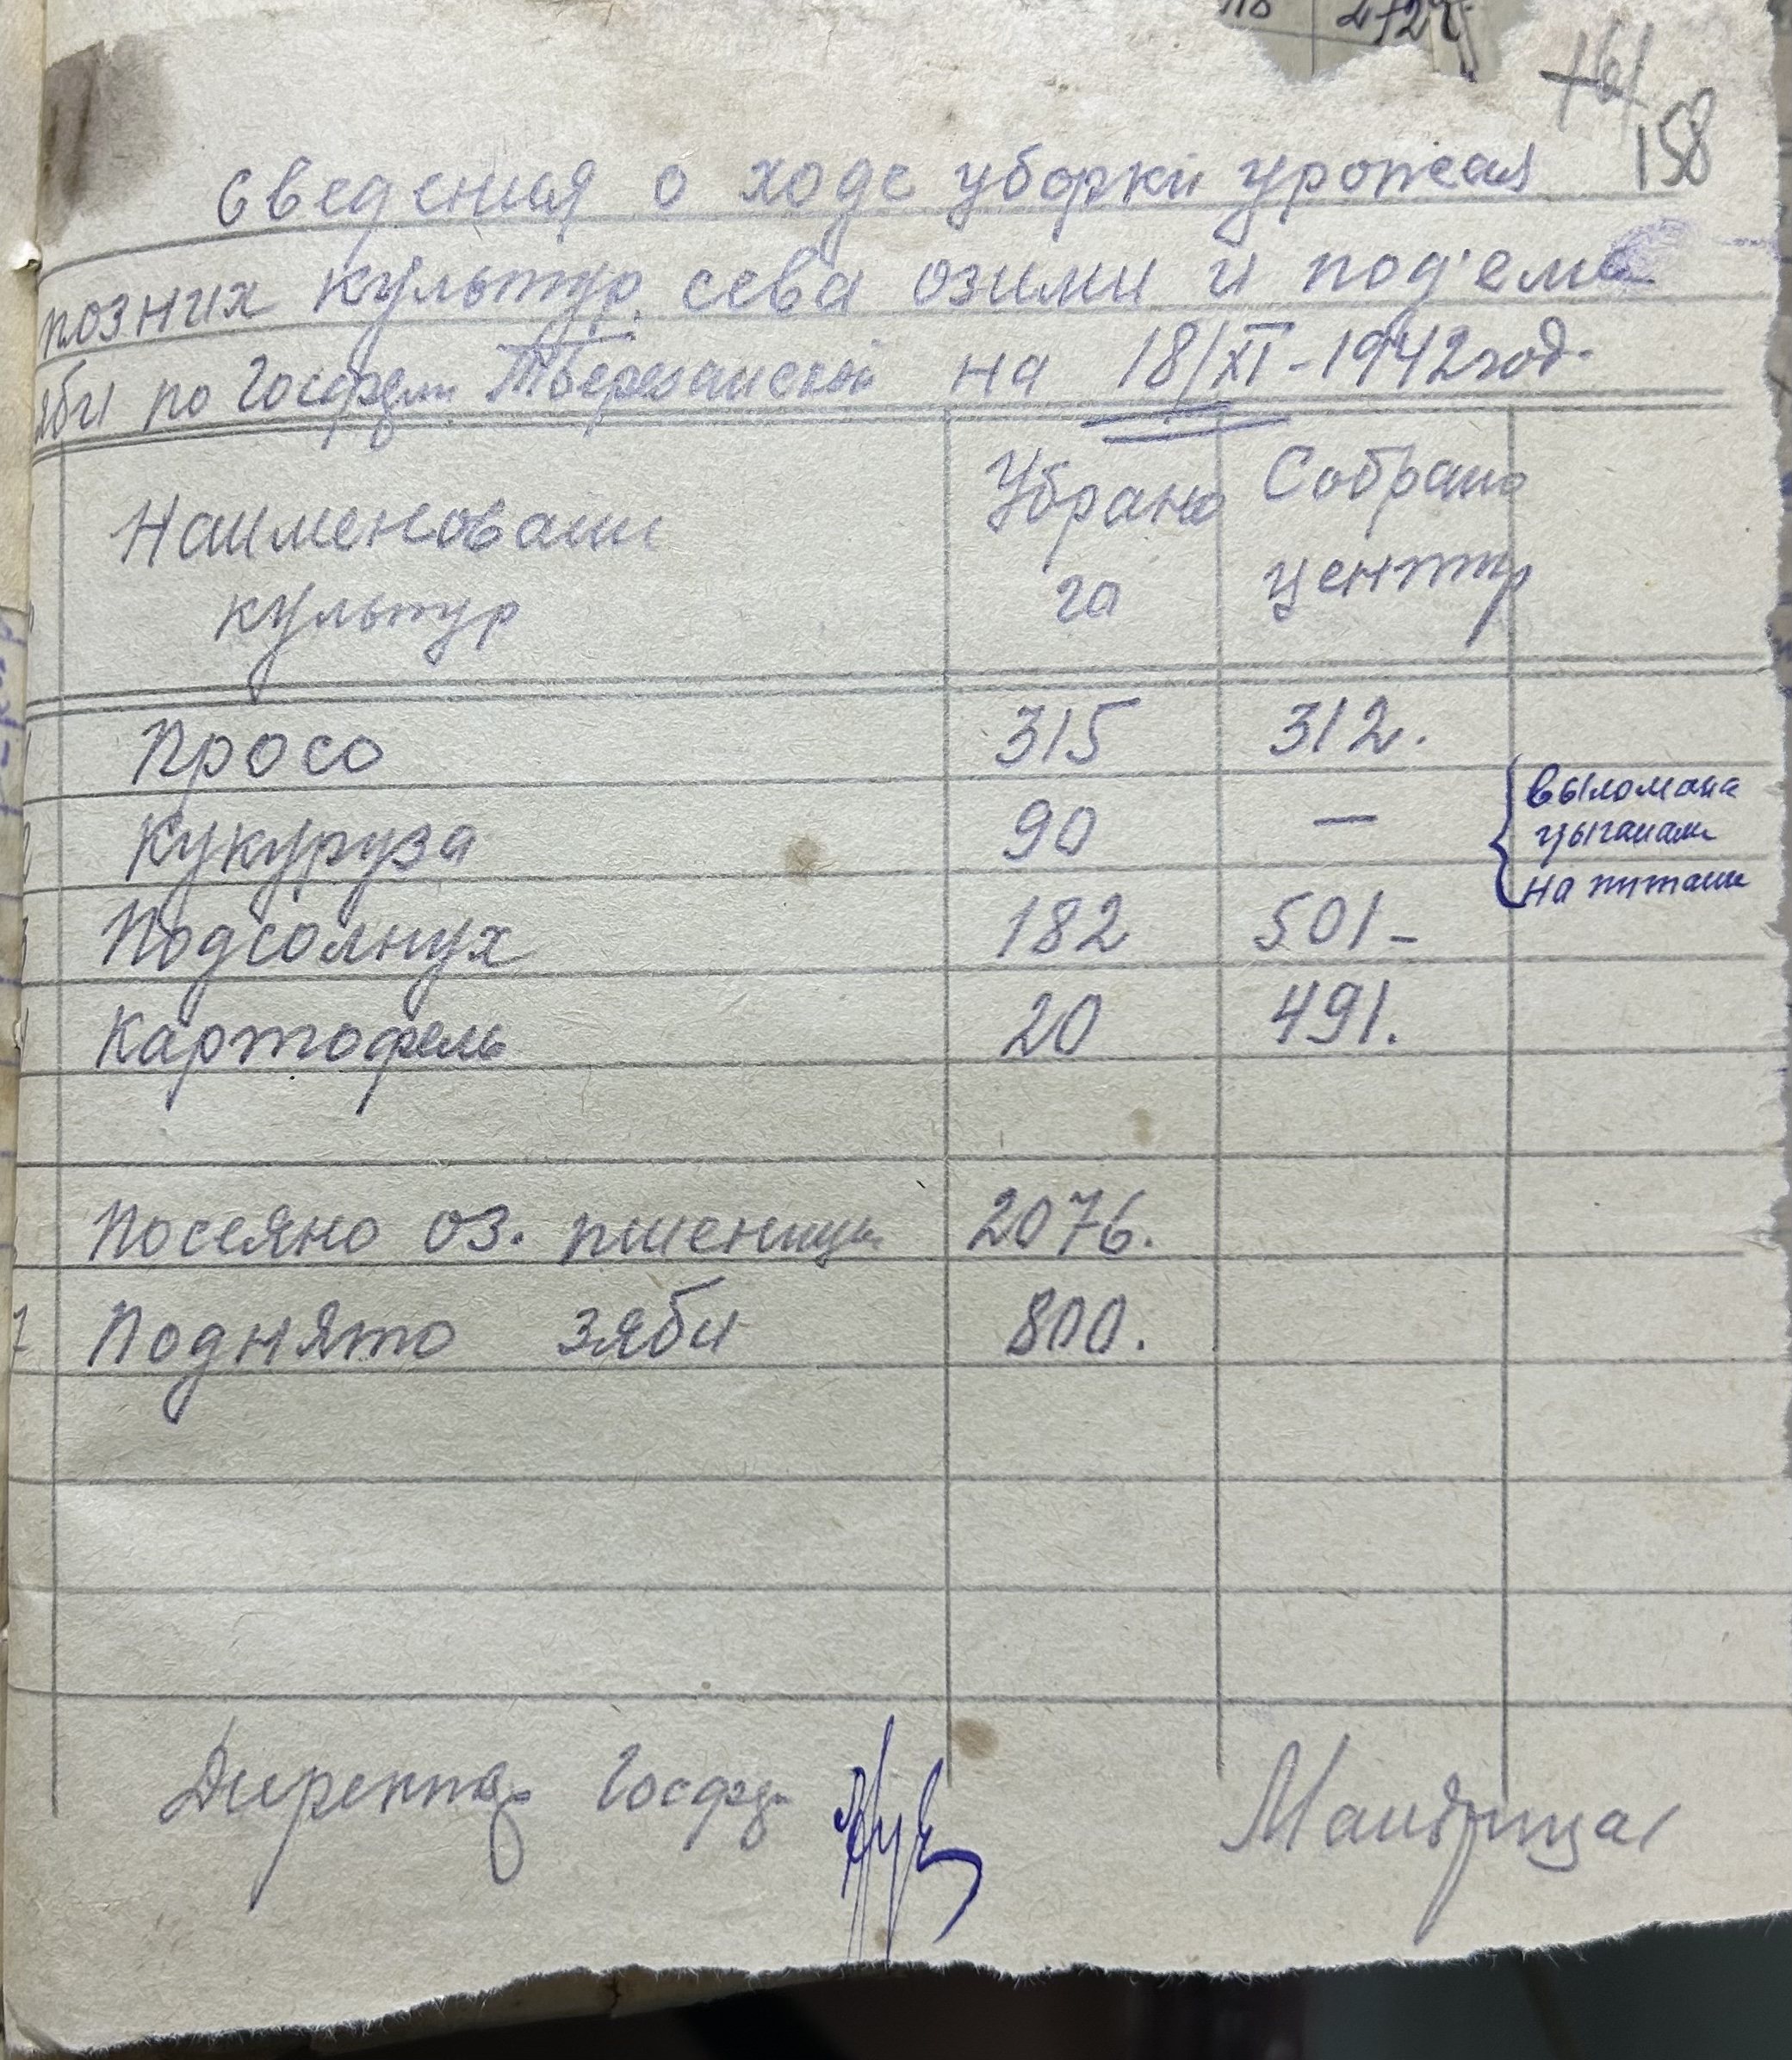 161
158
Сведения о ходе уборки урожая
поздних культур, сева озими и под'ема
зяби по Госферм. на 18/XI-1942 год.
Наименовани культур Убрано га Собрано центр
Просо 315 312.
Кукуруза 90 — выломана цыганами на питание
Подсолнух 182 501-
Картофель 20 491.
Посеяно оз. пшеницы 2076.
7 Поднято зяби 800.
Директор Госфер. Мандрица